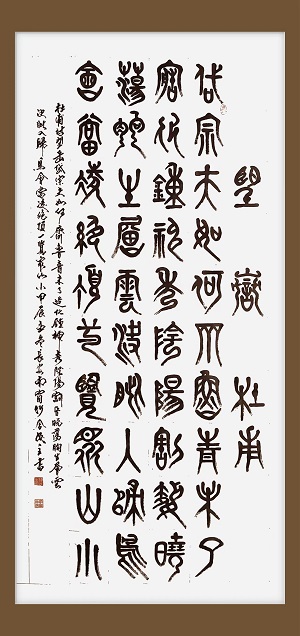 望嶽 杜甫
岱宗夫如何齊魯青未了
造化鍾神秀陰陽割昏曉
蕩胸生層雲決眥入歸鳥
會當凌絕頂一覽眾山小
杜甫詩望岳岱宗夫如何齊魯青未了造化鍾神秀陰陽割昏曉蕩胸生層雲
決眦入歸鳥會當凌絕頂一覽眾山小甲辰孟冬長安南窗